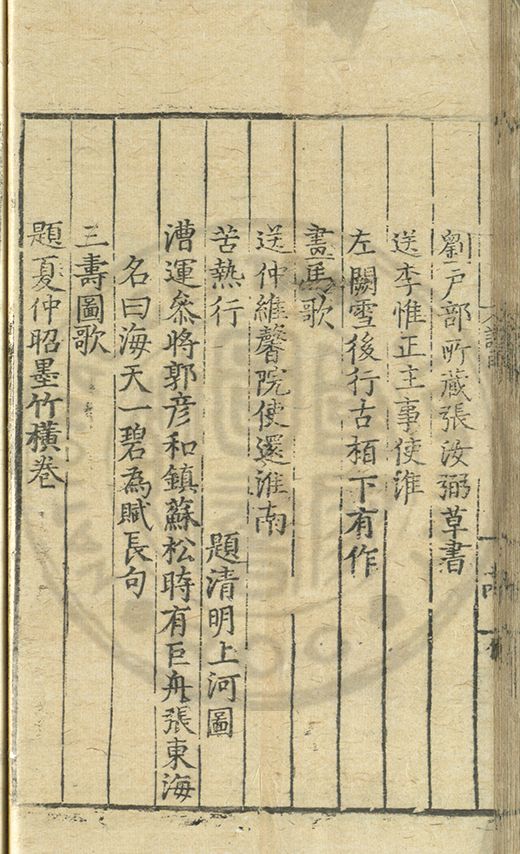 劉戶部所藏張汝弼草書
送李惟正主事使淮
左闕雪後行古栢下有作
畫馬歌
送仲維馨院使還淮南
苦熱行　題清明上河圖
漕運叅將郭彥和鎮蘇松時有巨舟張東海
名曰海天一碧為賦長句
三壽圖歌
題夏仲昭墨竹橫卷